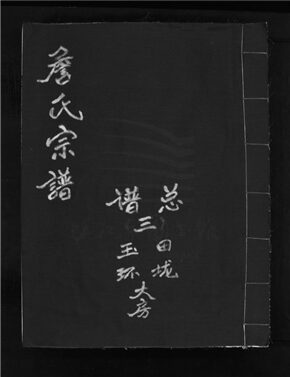 詹氏宗譜
总谱三
田垅
玉环大房